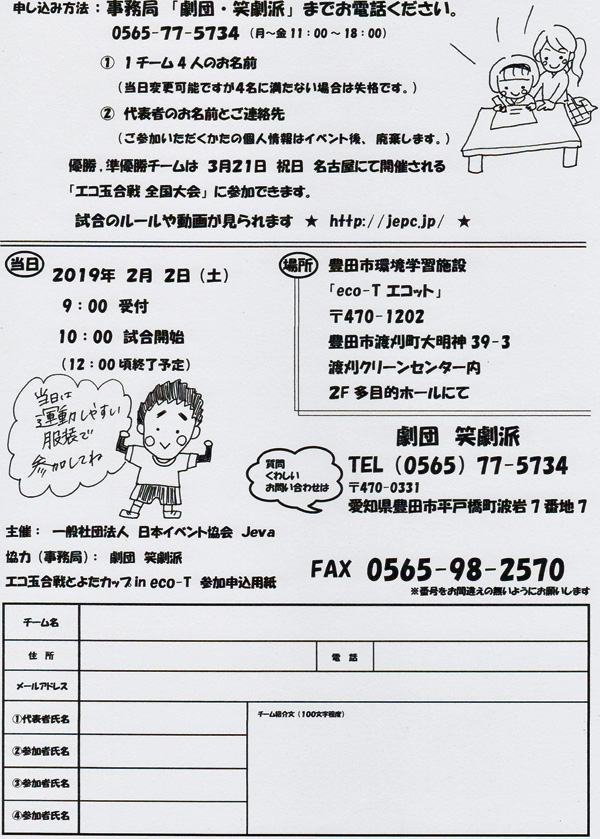 申し込み方法：事務局「劇団・笑劇派」までお電話ください。
0565-77-5734（月～金11：00～18：00）
① 1チーム4人のお名前
（当日変更可能ですが4名に満たない場合は失格です。）
② 代表者のお名前とご連絡先
（ご参加いただくかたの個人情報はイベント後、廃棄します。）
優勝，準優勝チームは 3月21日 祝日 名古屋にて開催される
「エコ玉合戦 全国大会」に参加できます。
試合のルールや動画が見られます ★ http://jepc.jp/ ★
当日
2019年 2月 2日（土）
9：00 受付
10：00 試合開始
（12：00頃終了予定）
場所
豊田市環境学習施設
「eco-T エコット」
〒470-1202
豊田市渡刈町大明神39-3
渡刈クリーンセンター内
2F多目的ホールにて
当日は
運動しやすい
服装で
参加してね
質問
くわしい
お問い合わせは
劇団 笑劇派
TEL（0565）77-5734
〒470-0331
愛知県豊田市平戸橋町波岩7番地7
主催： 一般社団法人 日本イベント協会 Jeva
協力（事務局）： 劇団 笑劇派
エコ玉合戦とよたカップin eco-T 参加申込用紙
FAX 0565-98-2570
※番号をお間違えの無いようにお願いします
チーム名
住 所
電 話
メールアドレス
①代表者氏名
チーム紹介文（100文字程度）
②参加者氏名
③参加者氏名
④参加者氏名